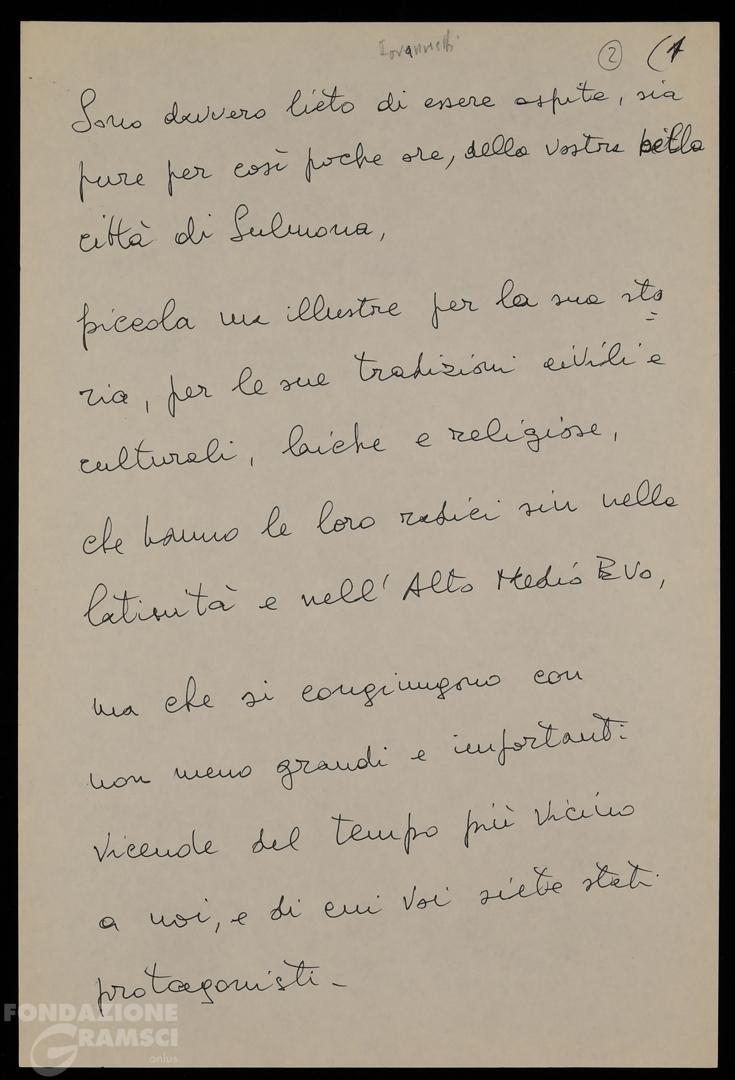 Iovannitti
② (1
Sono davvero lieto di essere ospite, sia
pure per così poche ore, della vostra bella
città di Sulmona,
piccola ma illustre per la sua sto
ria, per le sue tradizioni civili e
culturali, laiche e religiose,
che hanno le loro radici sin nella
latinità e nell' Alto Medio Evo,
ma che si congiungono con
non meno grandi e importanti
vicende del tempo più vicino
a noi, e di cui voi siete stati
protagonisti -
FONDAZIONE
GRAMSCI
onlus